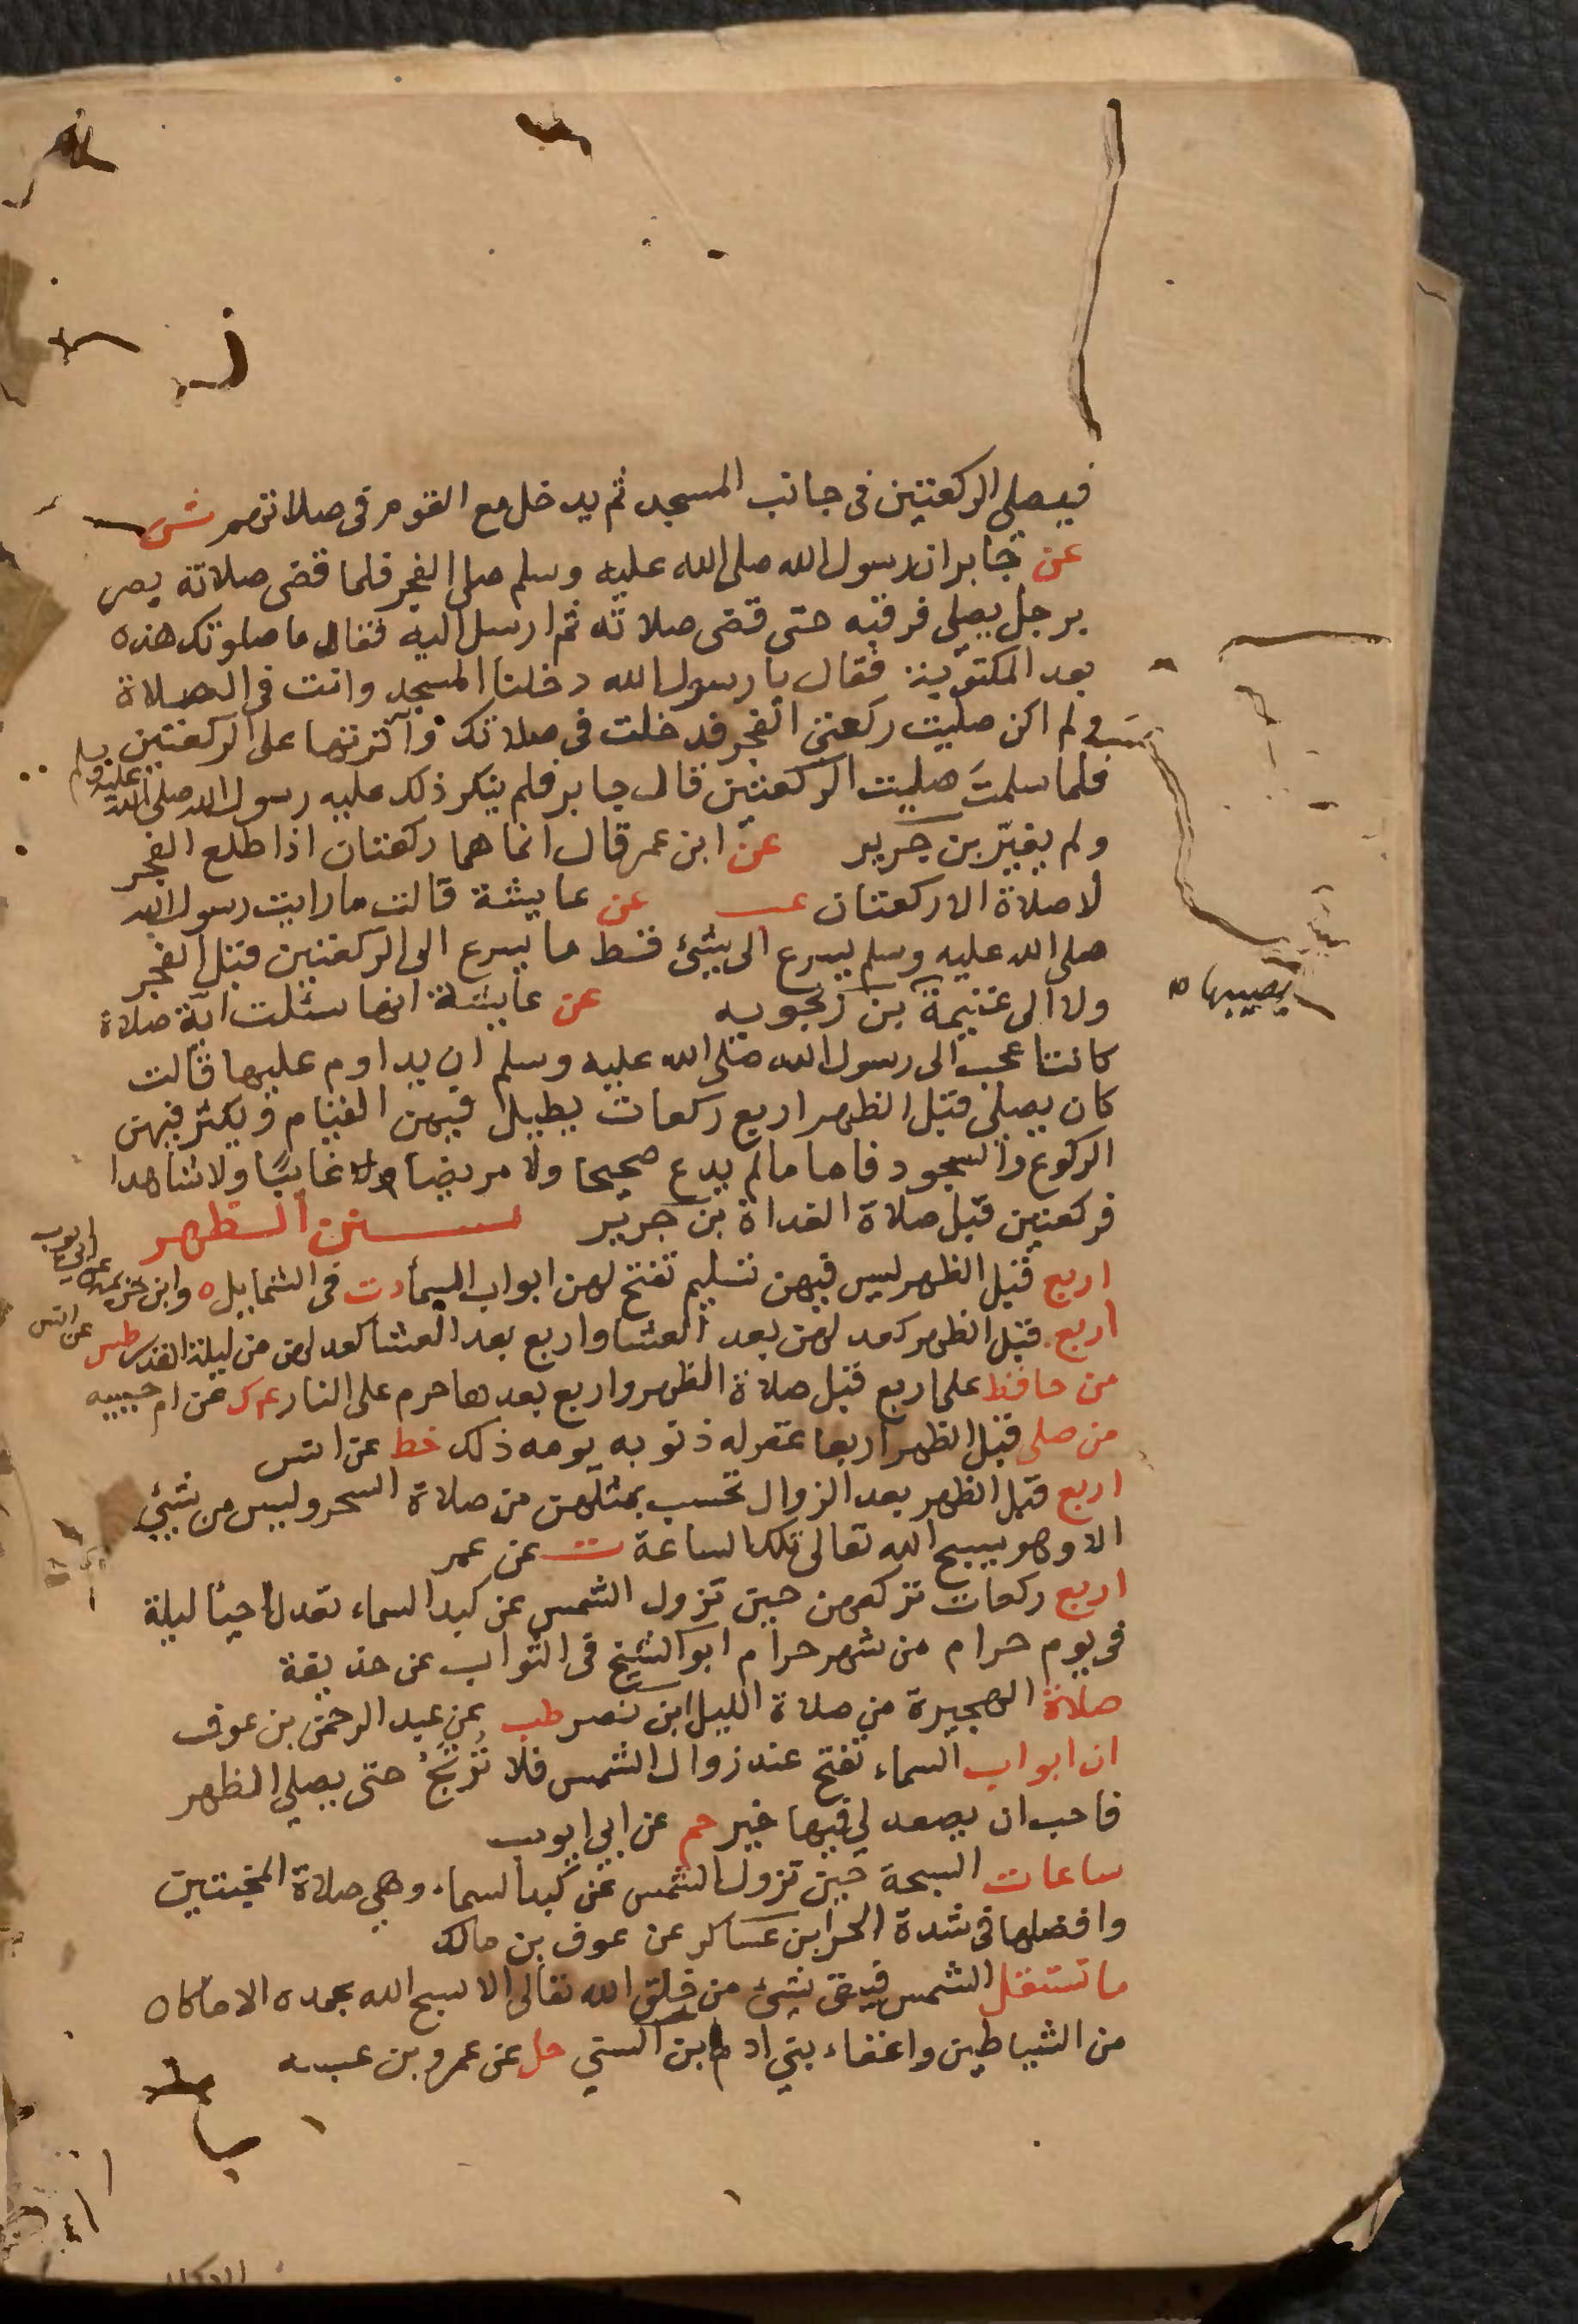 فيصلي الركعتين في جانب المسجد ثم يدخل مع القوم في صلاتهم ش
عن جابر ان رسول الله صلى الله عليه وسلم صلى الفجر فلما قضى صلاته بصر
برجل يصلي فرقبه حتى قضى صلاته ثم ارسل اليه فقال ما صلوتك هذه
بعد المكتوبة فقال يا رسول الله دخلنا المسجد وانت في الصلاة
ولم اكن صليت ركعتي الفجر فدخلت في صلاتك وآثرتها على الركعتين
فلما سلمت صليت الركعتين قال جابر فلم ينكر ذلك عليه رسول الله صلى الله عليه وسلم
ولم يغير بن جرير عن ابن عمر قال انما هما ركعتان اذا طلع الفجر
لا صلاة الا ركعتان عب عن عايشة قالت ما رايت رسول الله
صلى الله عليه وسلم يسرع الى شئ قط ما يسرع الى الركعتين قبل الفجر
ولا الى غنيمة بن زنجويه عن عايشة انها سئلت اية صلاة
يصيبها
كانت اعجب الى رسول الله صلى الله عليه وسلم ان يداوم عليها قالت
كان يصلي قبل الظهر اربع ركعات يطيل فيهن القيام ويكثر فيهن
الركوع والسجود فاما ما لم يدع صحيحا ولا مريضا ولا غايبا ولا شاهدا
فركعتين قبل صلاة الغداة بن جرير سنن الظهر
اربع قبل الظهر ليس فيهن تسليم تفتح لهن ابواب السماء دت في الشمايل ه وابن خزيمة عن ابي ايوب
اربع قبل الظهر كعدلهن بعد العشا واربع بعد العشا كعدلهن من ليلة القدر طس عن انس
من حافظ على اربع قبل صلاة الظهر واربع بعدها حرم على النار عم ك عن ام حبيبه
من صلى قبل الظهر اربعا غفر له ذنوبه يومه ذلك خط عن انس
اربع قبل الظهر بعد الزوال تحسب بمثلهن من صلاة السحر وليس من شيئ
الا وهو يسبح الله تعالى تلك الساعة ت عن عمر
اربع ركعات تركعهن حين تزول الشمس عن كبد السماء تعدل احيا ليلة
في يوم حرام من شهر حرام ابو الشيخ في الثواب عن حذيفة
صلاة الهجيرة من صلاة الليل ابن نصر طب عن عبد الرحمن بن عوف
ان ابواب السماء تفتح عند زوال الشمس فلا تُرتَجُ حتى يصلي الظهر
فاحب ان يصعد لي فيها خير حم عن ابي ايوب
ساعات السبحة حين تزول الشمس عن كبد السماء وهي صلاة المخبتين
وافضلها في شدة الحر ابن عساكر عن عوف بن مالك
ما تستقل الشمس فيبقى شئ من خلق الله تعالى الا سبح الله بحمده الا ما كان
من الشياطين واغفاء بني ادم ابن السني حل عن عمرو بن عبسه